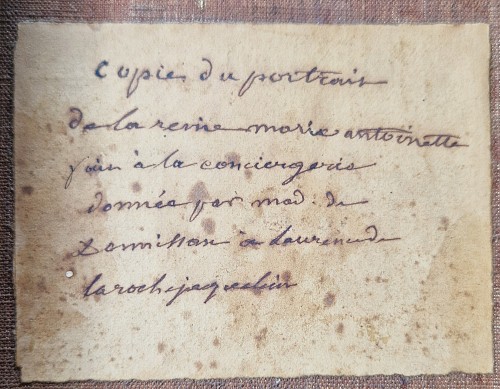 Copie du portrait
de la reine marie antoinette
fait à la conciergerie
donnée par mad. de
Donnissan à Laurence de
larochejaquelin